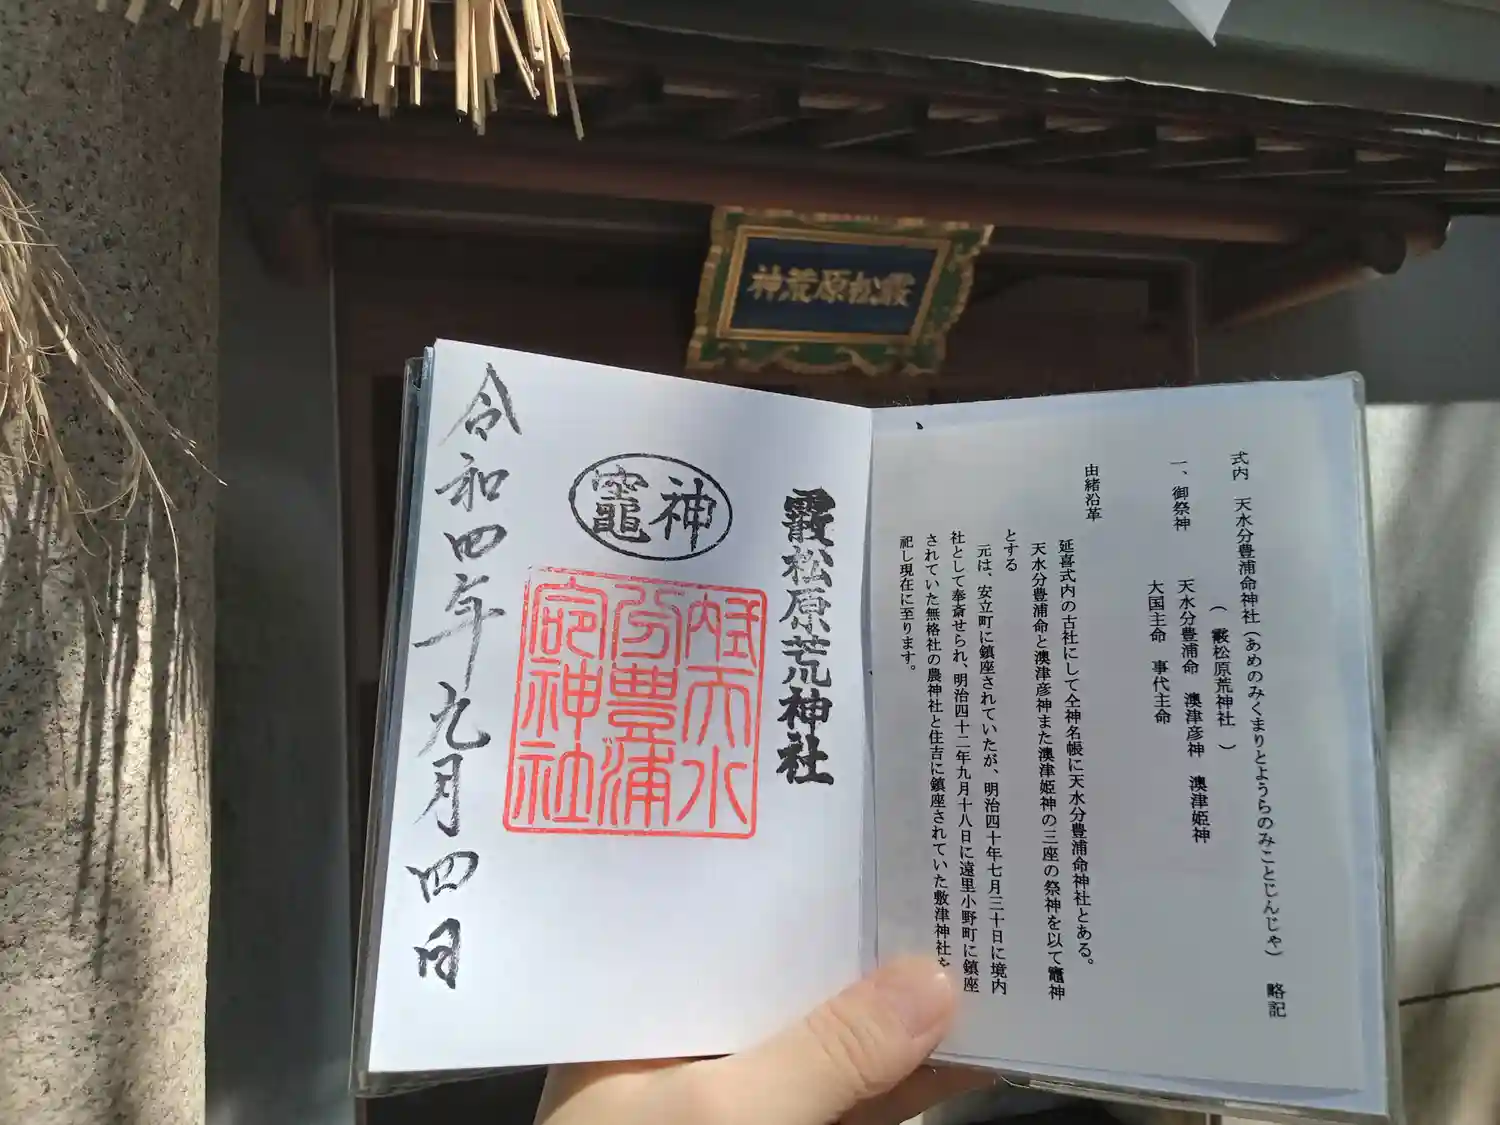 霰松原荒神
式内　天水分豊浦命神社（あめのみくまりとようらのみことじんじゃ）　略記
（　霰松原荒神社　）
一、御祭神　天水分豊浦命　澳津彦神　澳津姫神
大国主命　事代主命
由緒沿革
延喜式内の古社にして仝神名帳に天水分豊浦命神社とある。
天水分豊浦命と澳津彦神また澳津姫神の三座の祭神を以て竈神
とする
元は、安立町に鎮座されていたが、明治四十年七月三十日に境内
社として奉斎せられ、明治四十二年九月十八日に遠里小野町に鎮座
されていた無格社の農神社と住吉に鎮座されていた敷津神社を
祀し現在に至ります。
霰松原荒神社
神竈
天水
分豊浦
命神社
令和四年九月四日